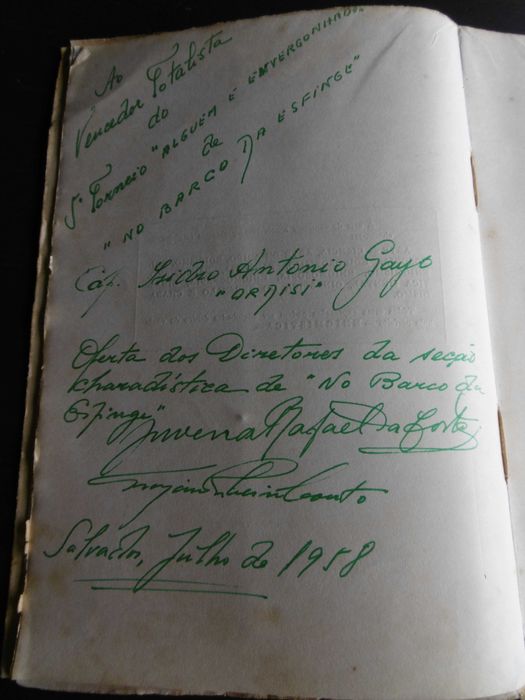 Ao
Vencedor Totalista
do
5º Torneio "ALGUEM É ENVERGONHADO"
de
"NO BARCO DA ESFINGE"
Cap. Isidro Antonio Gayo
"ORDISI"
Oferta dos Diretores da secção
kharadística de "No Barco da
Esfinge"
Rafael da Costa
Salvador, Julho de 1958